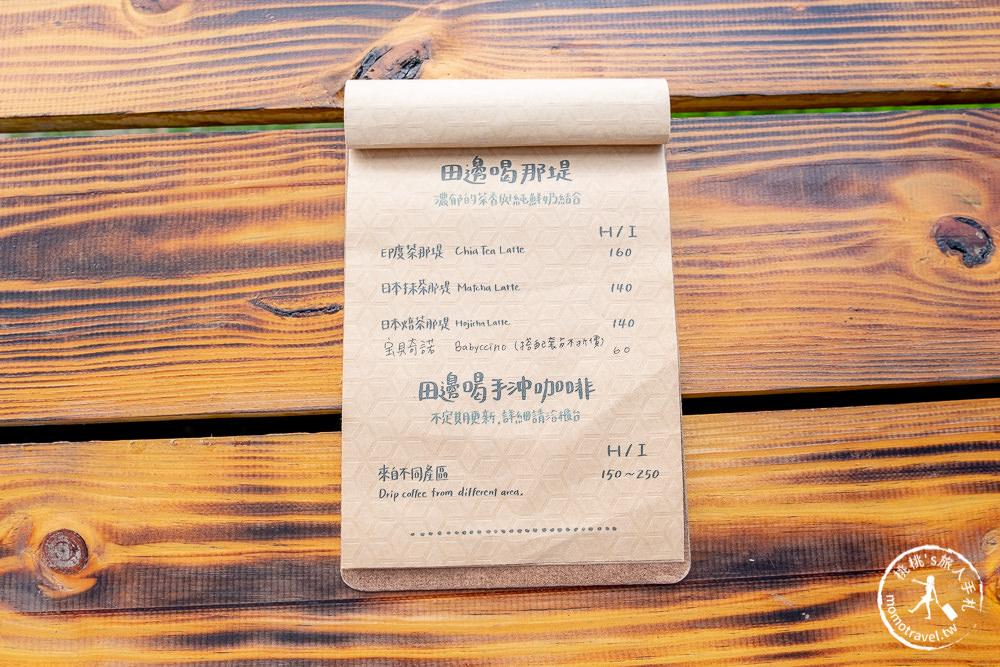 田邊喝那堤
濃郁的茶香與純鮮奶結合
H / I
印度茶那堤 Chia Tea Latte 160
日本抹茶那堤 Matcha Latte 140
日本焙茶那堤 Hojicha Latte 140
宝貝奇諾 Babyccino (搭配套台不折價) 60
田邊喝手沖咖啡
不定期更新,詳細請洽櫃台
H / I
來自不同產區 150~250
Drip coffee from different area.
桃桃's旅人手札
momotravel.tw